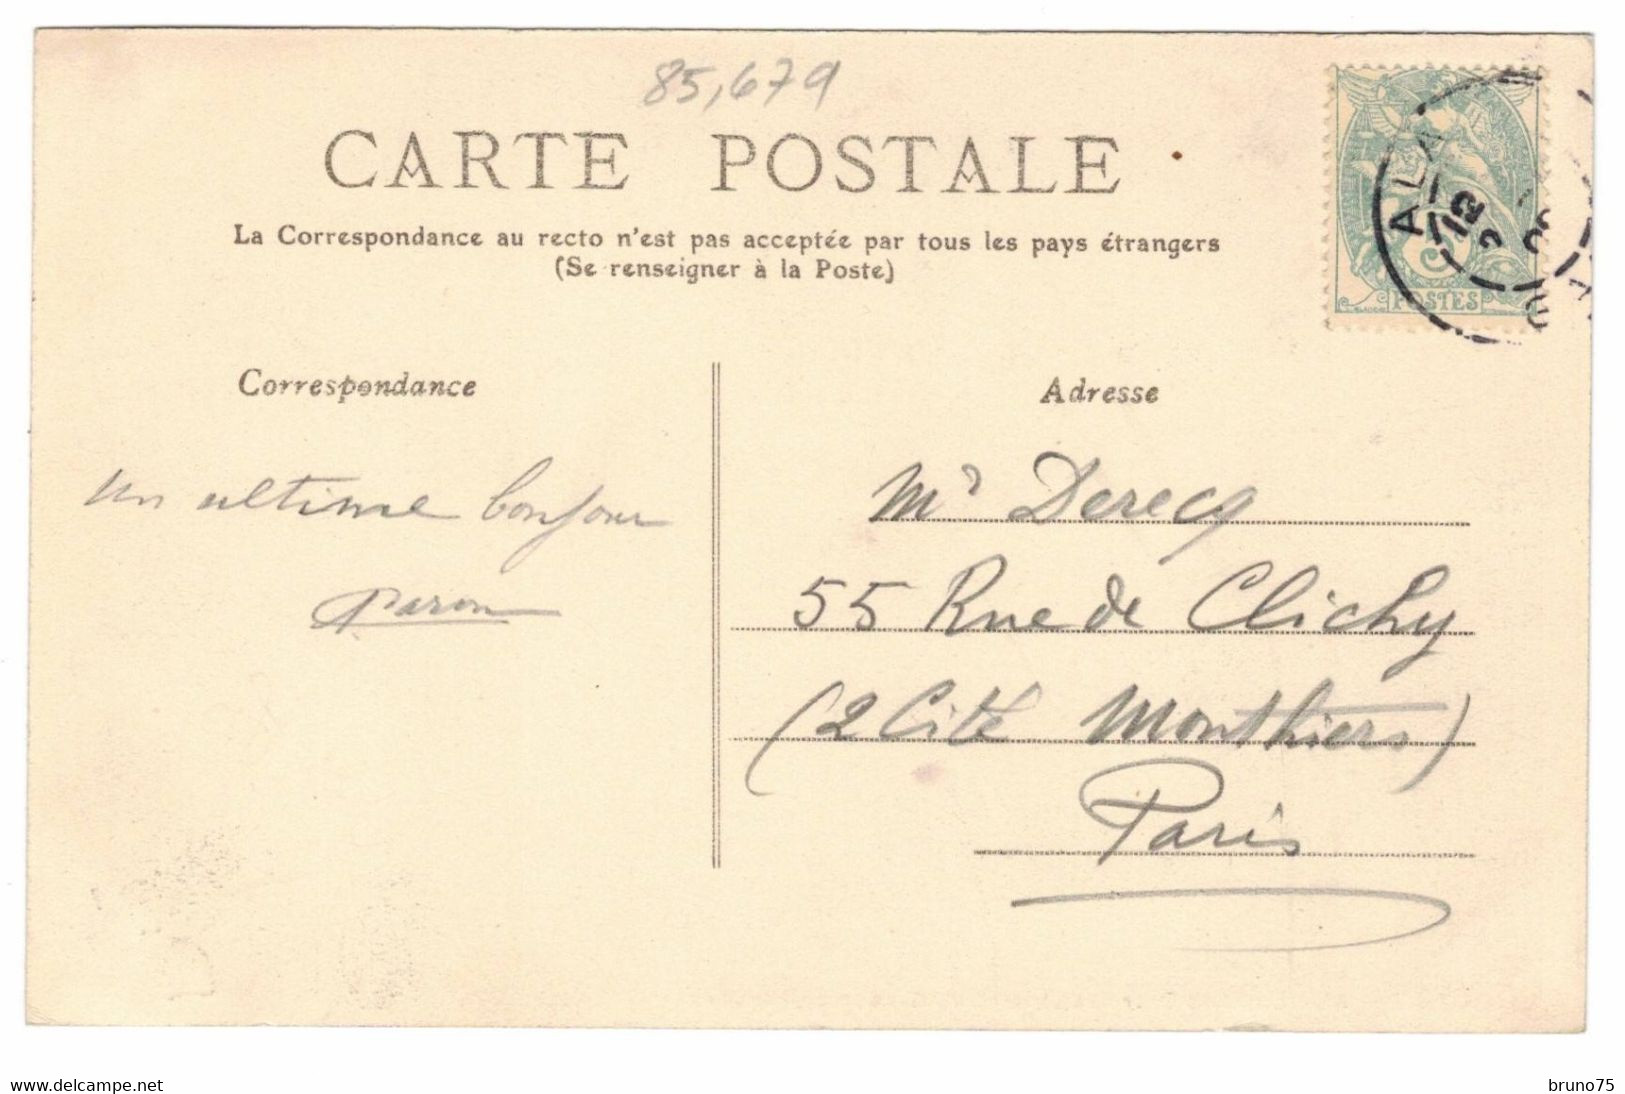 85,679
CARTE POSTALE
La Correspondance au recto n'est pas acceptée par tous les pays étrangers
(Se renseigner à la Poste)
POSTES
Correspondance
un ultime bonjour
Adresse
Mr Derecq
55 Rue de Clichy
(2 Cité Monthiers)
Paris
www.delcampe.net
bruno75